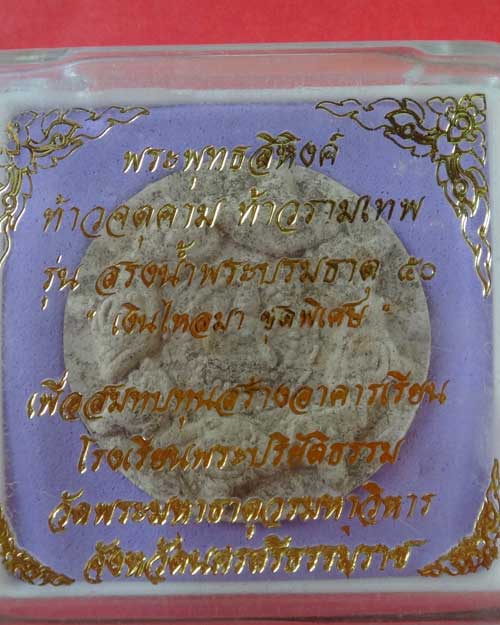 พระพุทธสิหิงค์
ท้าวจตุคาม ท้าวรามเทพ
รุ่น สรงน้ำพระบรมธาตุ ๕๐
" เงินไหลมา ชุดพิเศษ "
เพื่อสมทบทุนสร้างอาคารเรียน
โรงเรียนพระปริยัติธรรม
วัดพระมหาธาตุวรมหาวิหาร
จังหวัดนครศรีธรรมราช